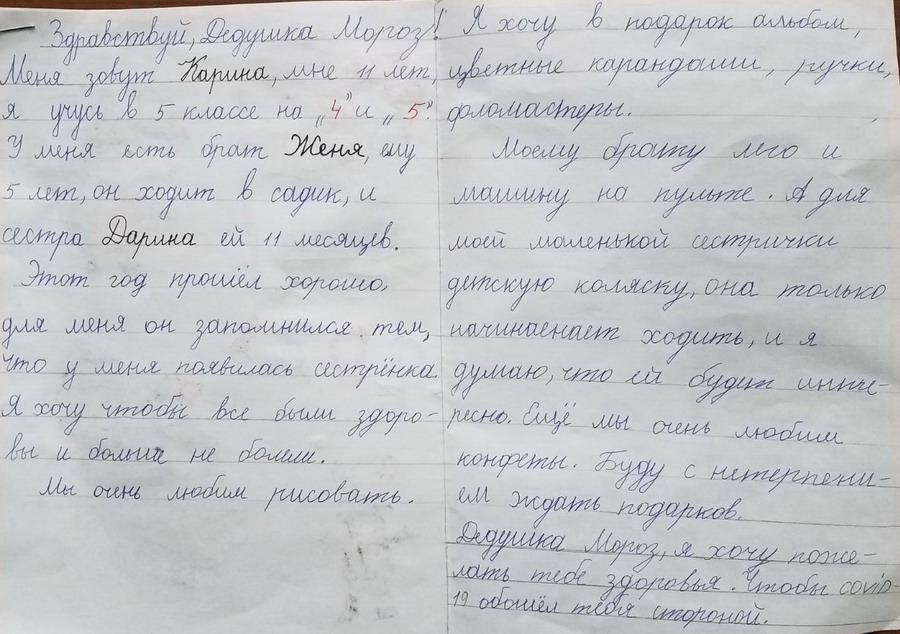 Здравствуй, Дедушка Мороз!
Меня зовут Карина, мне 11 лет,
я учусь в 5 классе на „4” и „5”.
У меня есть брат Женя, ему
5 лет, он ходит в садик, и
сестра Дарина ей 11 месяцев.
Этот год прошёл хорошо,
для меня он запомнился тем,
что у меня появилась сестрёнка
Я хочу чтобы все были здоро-
вы и больше не болели.
Мы очень любим рисовать.
Я хочу в подарок альбом,
цветные карандаши, ручки,
фломастеры.
Моему брату лего и
машину на пульте. А для
моей маленькой сестрички
детскую коляску, она только
начинаенает ходить, и я
думаю, что ей будет инте-
ресно. Ещё мы очень любим
конфеты. Буду с нетерпени-
ем ждать подарков.
Дедушка Мороз, я хочу поже-
лать тебе здоровья. Чтобы covid-
19 обошёл тебя стороной.